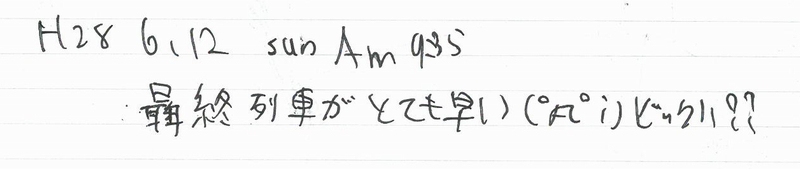 H28 6,12 sun Am 935
最終列車がとても早い(°д°i)ビックリ??